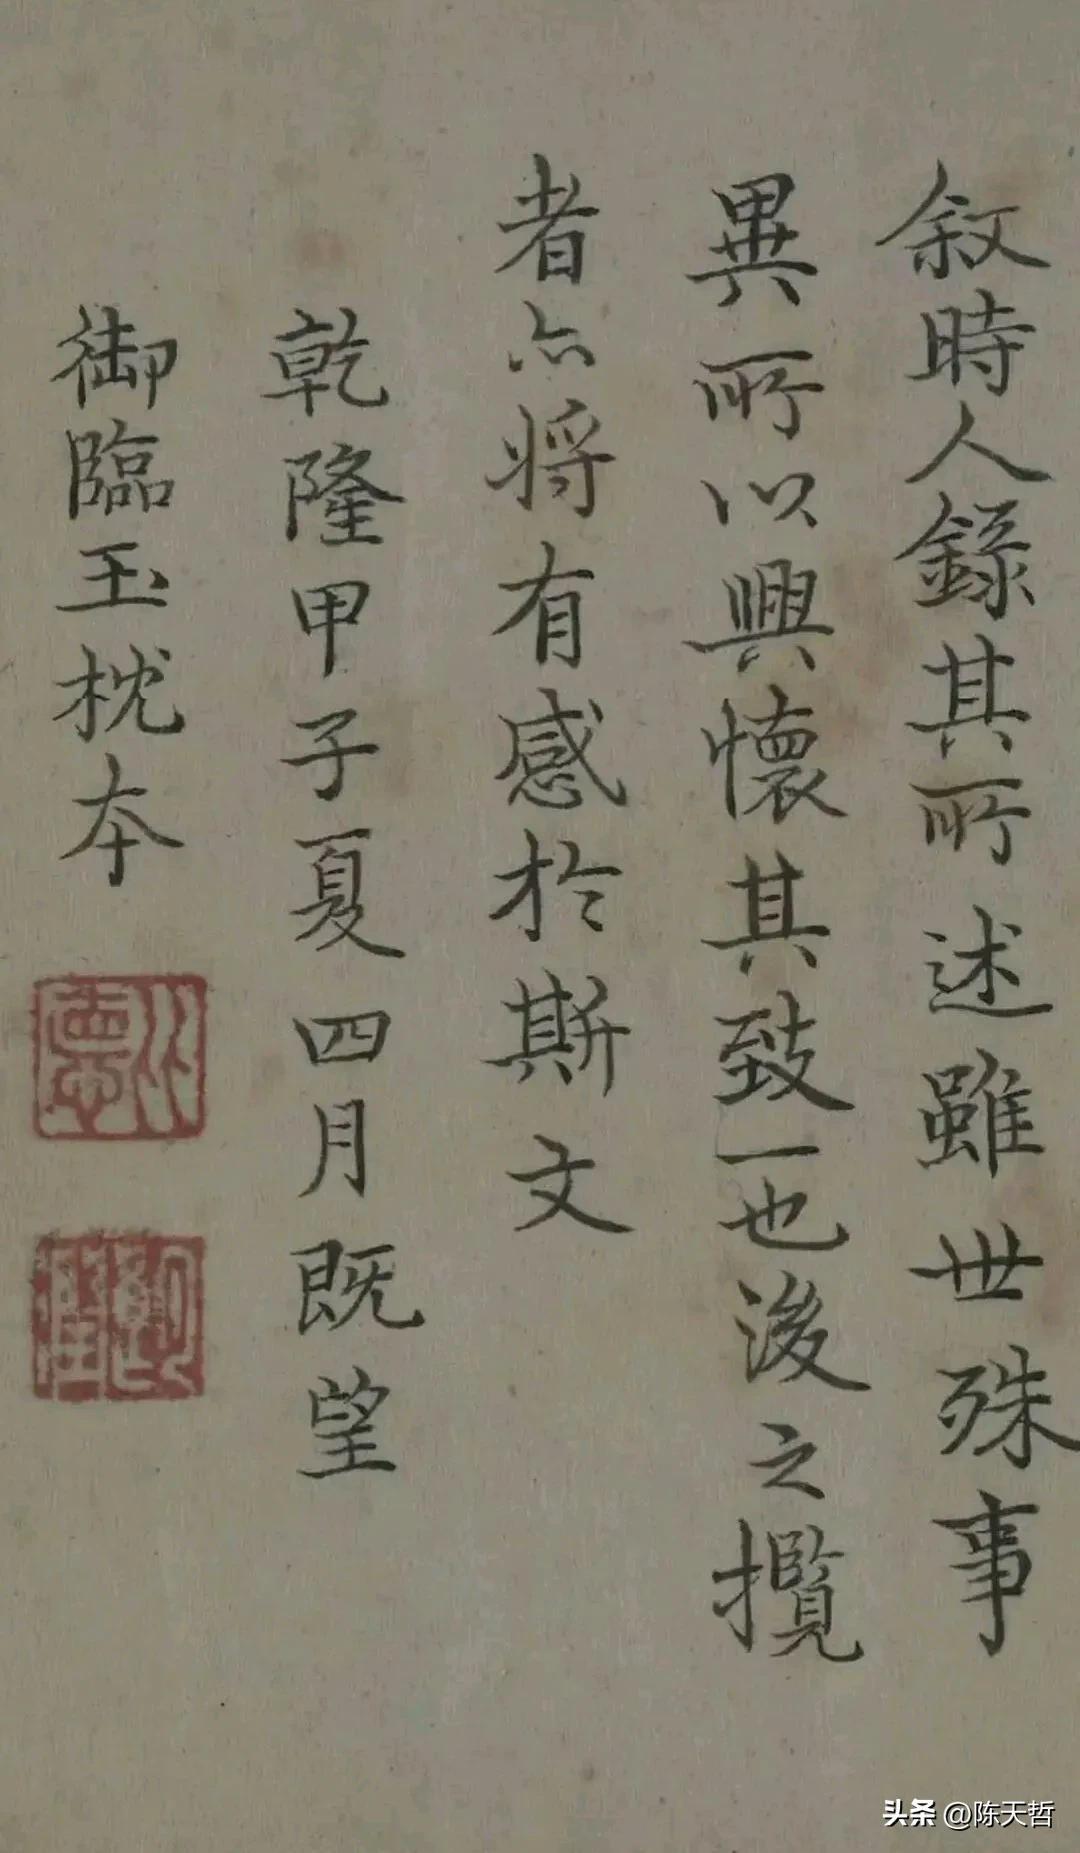 叙時人錄其所述雖世殊事
異所以興懷其致一也後之攬
者亦將有感於斯文
乾隆甲子夏四月既望
御臨玉枕本
头条 @陈天哲